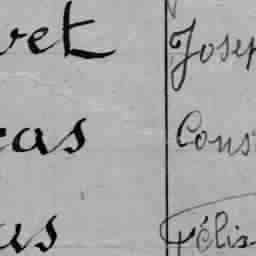 vet Josep
cas Cons
as Félix